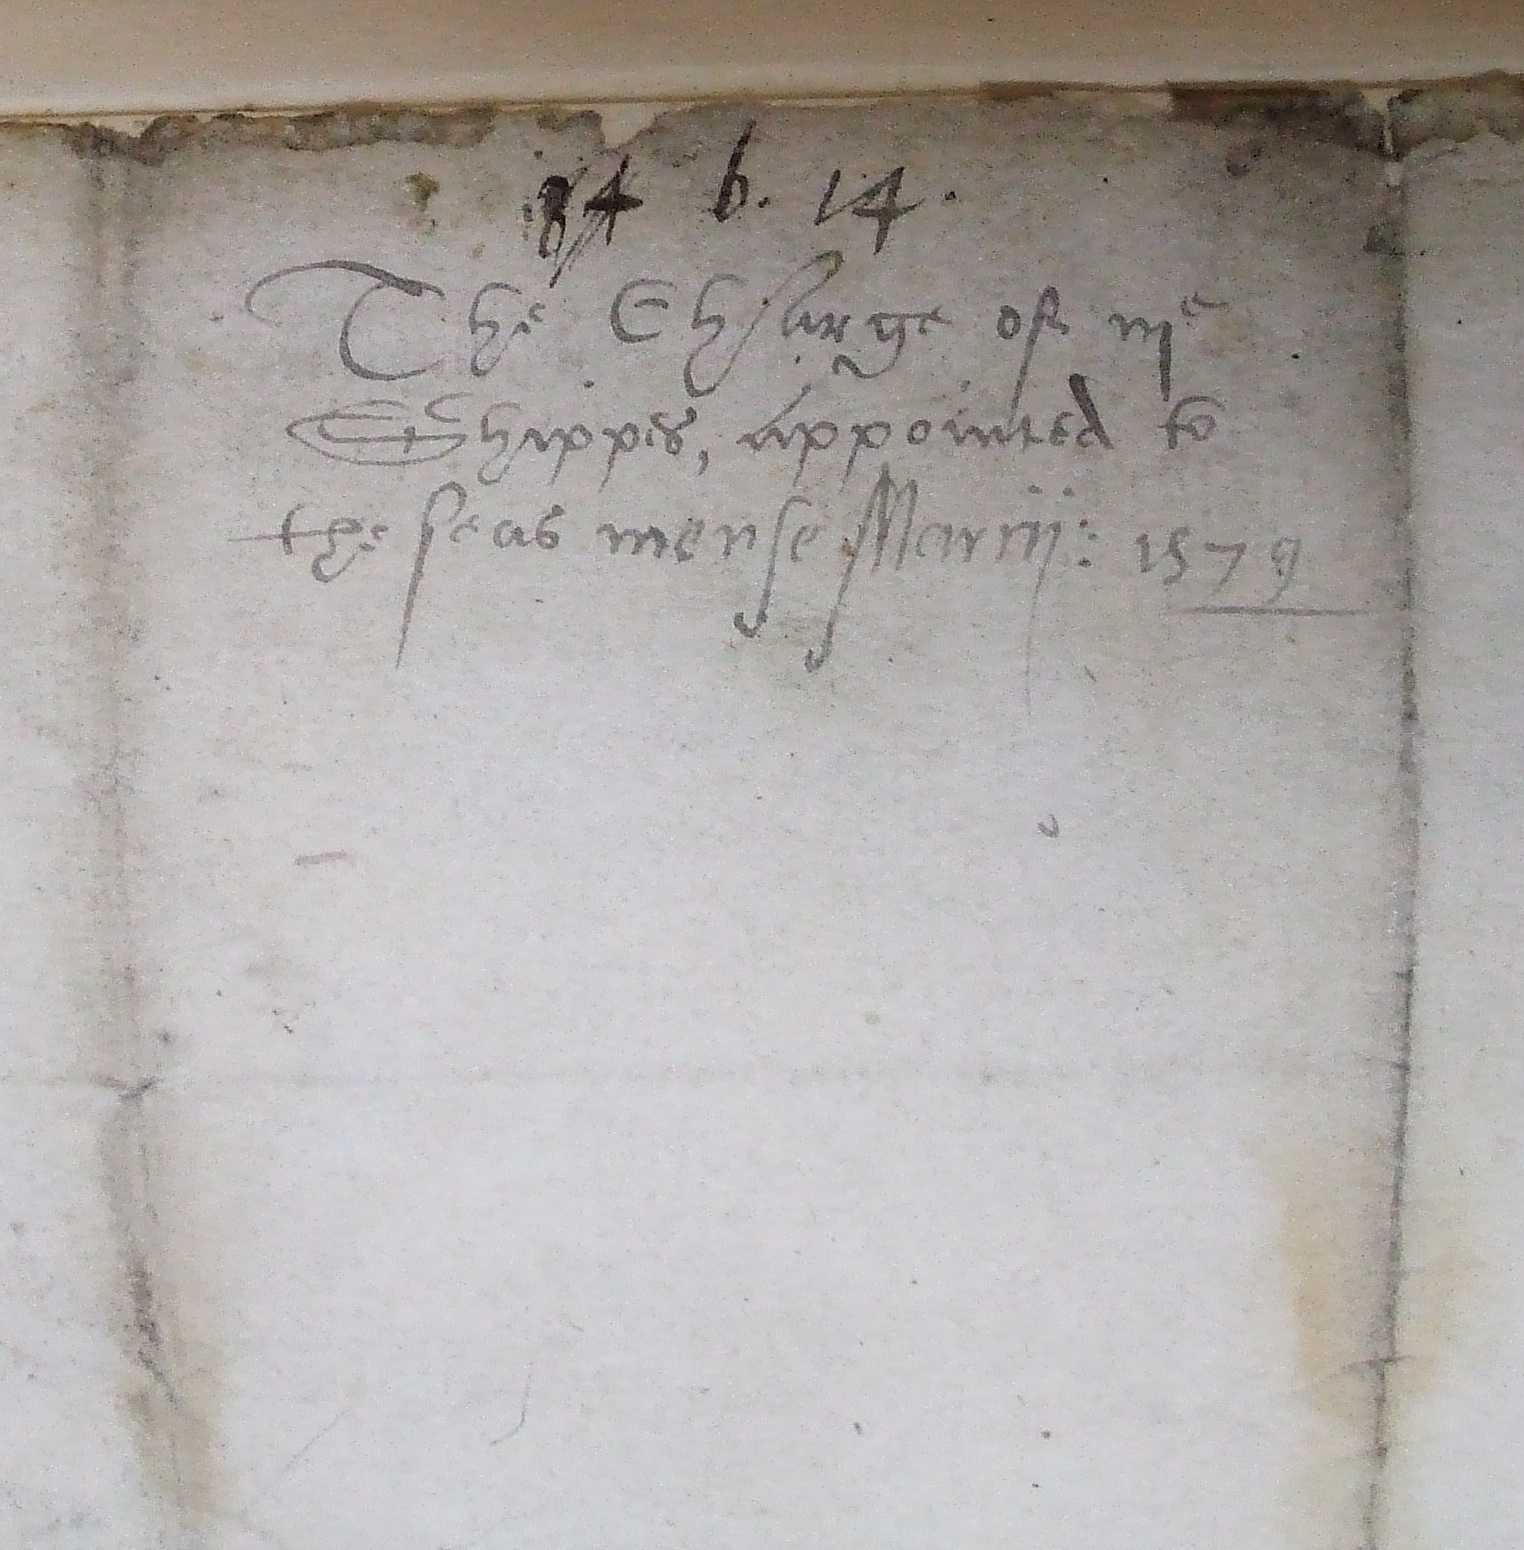 b. 14.
The Charge of
Shippes, appointed to
the seas mense Marcij: 1579